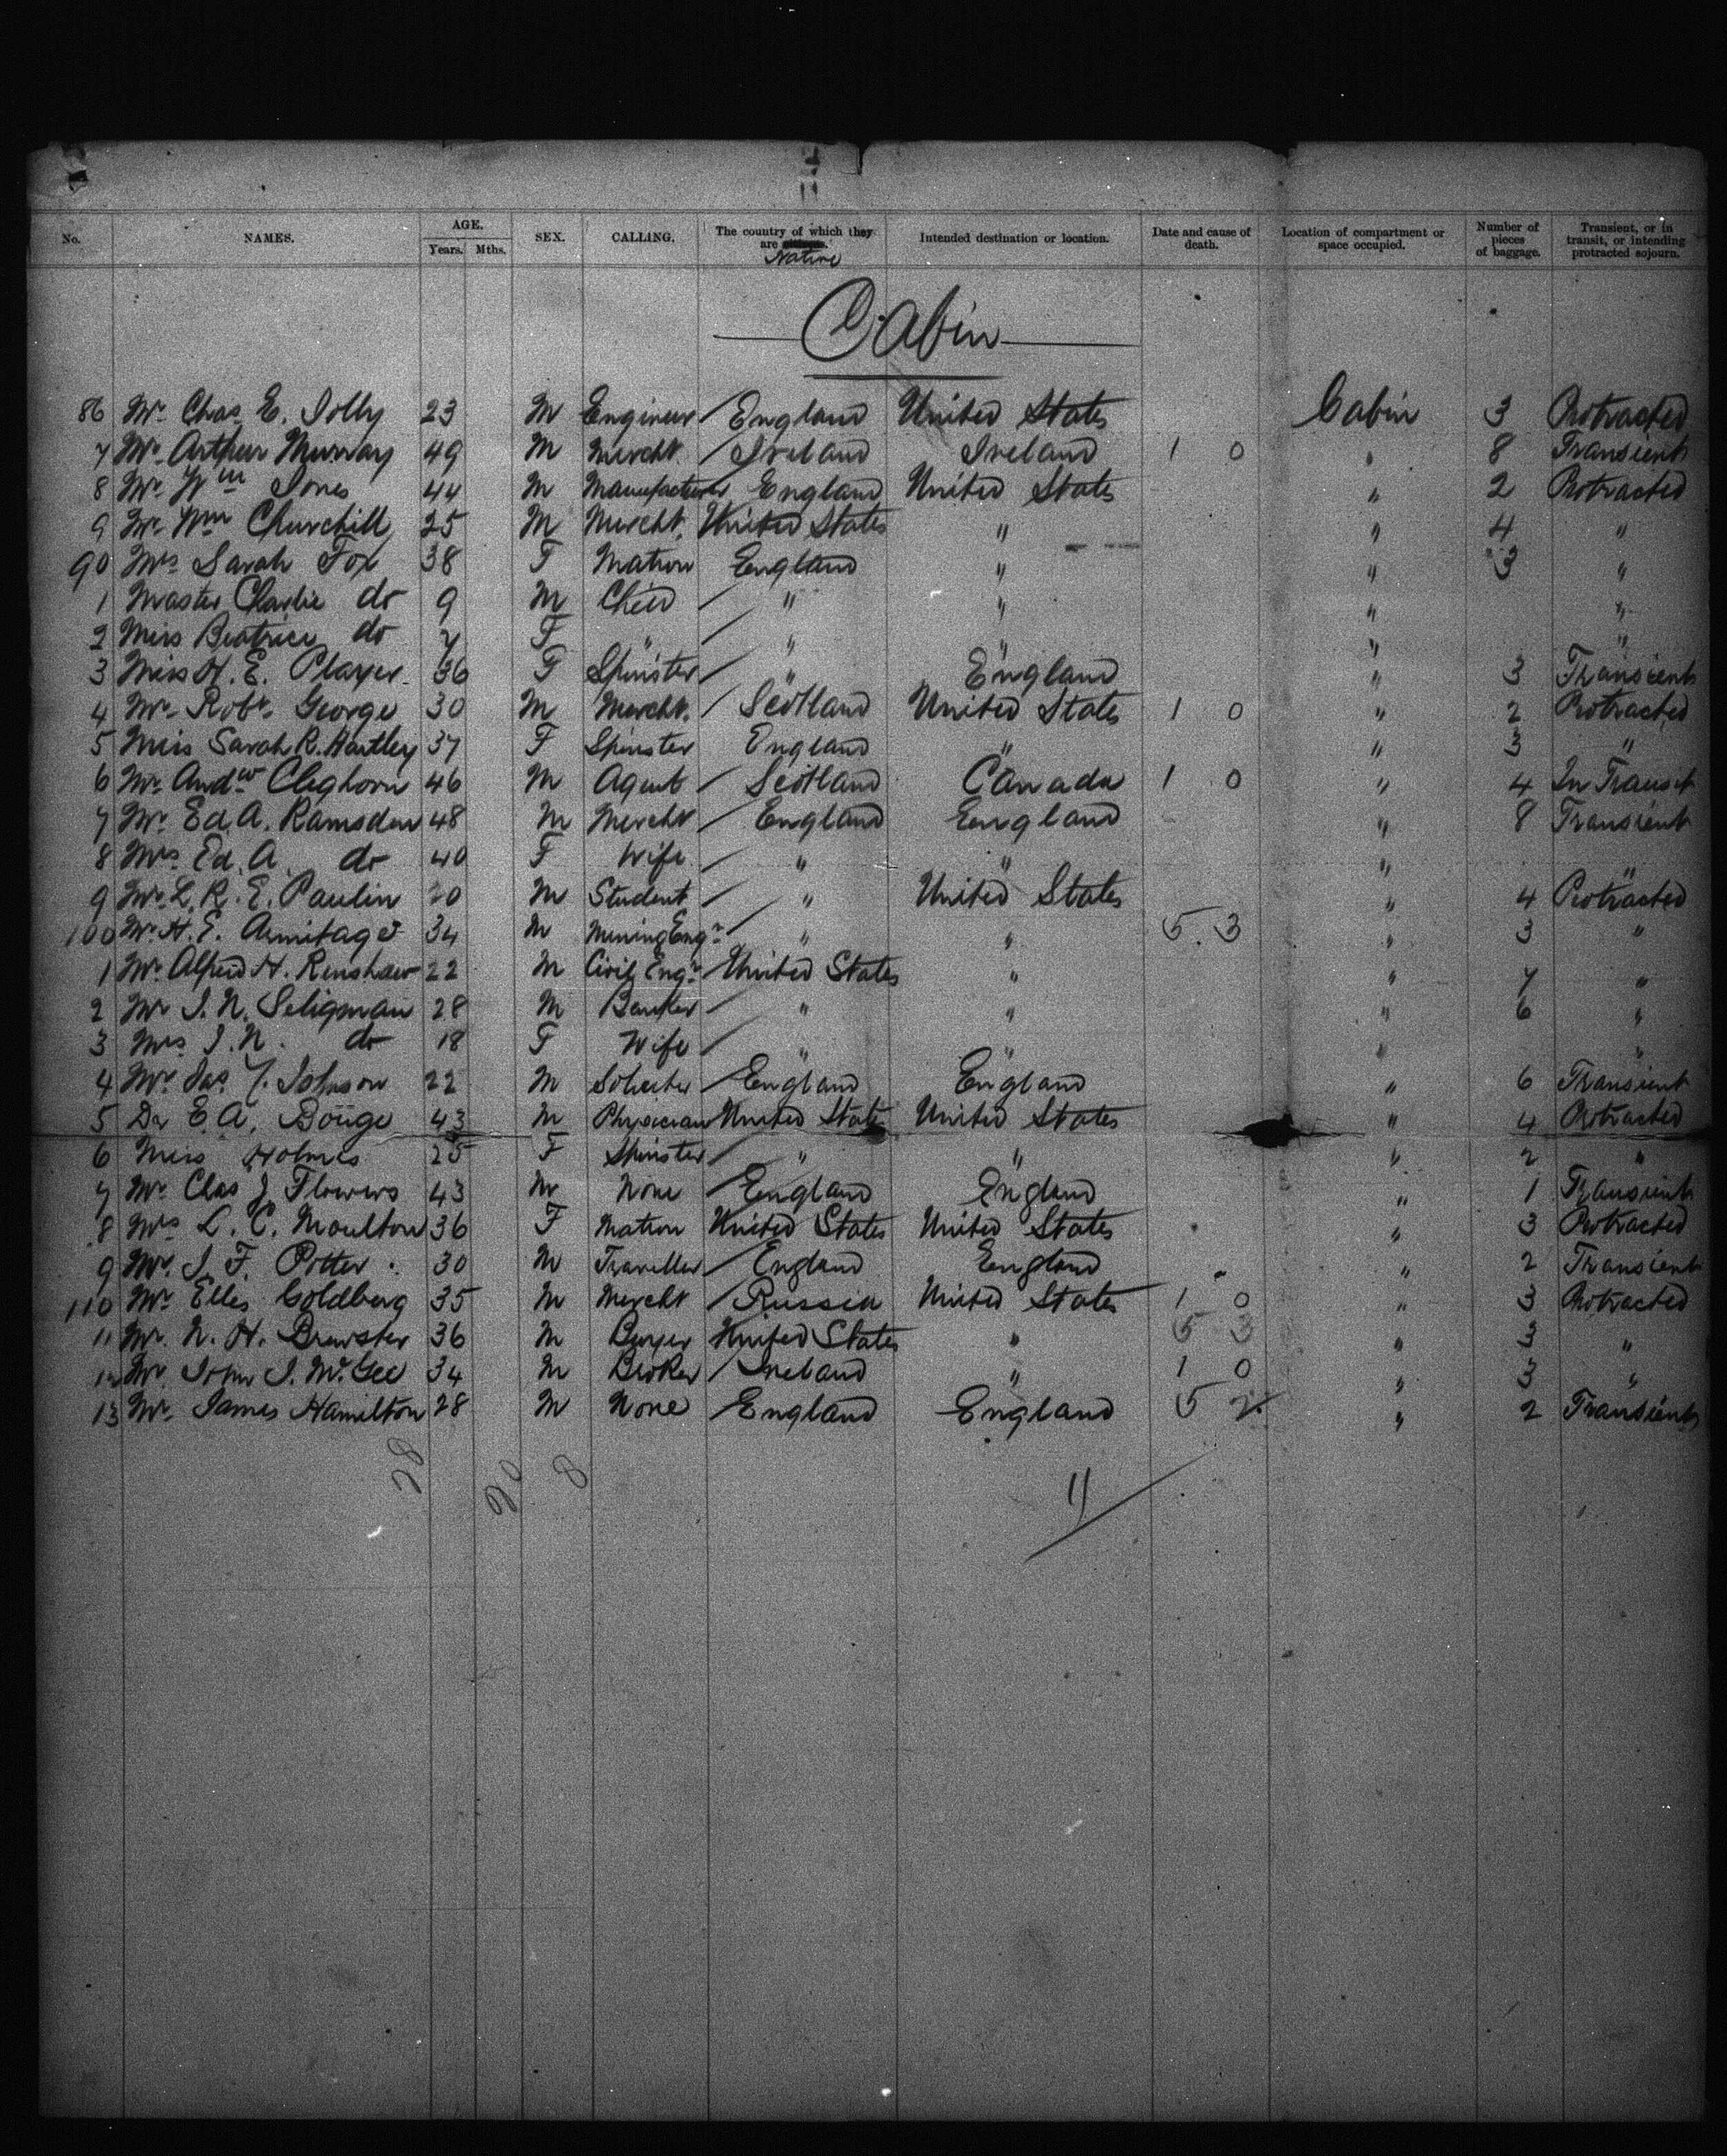 No. NAMES. AGE. Years. Mths. SEX. CALLING. The country of which they are Native Intended destination or location. Date and cause of death. Location of compartment or space occupied. Number of pieces of baggage. Transient, or in transit, or intending protracted sojourn.
Cabin
86 Mr. Chas. E. Jolly 23 M Engineer England United States Cabin 3 Protracted
7 Mr. Arthur Murray 49 M Mercht. Ireland Ireland 1 0 " 8 Transient
8 Mr. Wm Jones 44 M Manufacturer England United States " 2 Protracted
9 Mr. Wm Churchill 25 M Mercht. United States " " 4 "
90 Mrs Sarah Fox 38 F Matron England " " 3 "
1 Master Charlie do 9 M Child " " " "
2 Miss Beatrice do 7 F " " " " "
3 Miss H. E. Player 36 F Spinster " England " 3 Transient
4 Mr. Robt. George 30 M Mercht. Scotland United States 1 0 " 2 Protracted
5 Miss Sarah R. Hartley 37 F Spinster England " " 3 "
6 Mr. Andw Cleghorn 46 M Agent Scotland Canada 1 0 " 4 In Transit
7 Mr Ed. A. Ramsden 48 M Mercht England England " 8 Transient
8 Mrs Ed. A. do 40 F Wife " " " "
9 Mr. L. R. E. Paulin 20 M Student " United States " 4 Protracted
100 Mr. H. E. Armitage 34 M Mining Engr. " " 5 3 " 3 "
1 Mr. Alfred H. Renshaw 22 M Civil Engr. United States " " 7 "
2 Mr J. N. Seligman 28 M Banker " " " 6 "
3 Mrs J. N. do 18 F Wife " " " "
4 Mr. Jas. Y. Johnson 22 M Solicitor England England " 6 Transient
5 Dr E. A. Bouge 43 M Physician United States United States " 4 Protracted
6 Miss Holmes 25 F Spinster " " " 2 "
7 Mr. Chas J Flowers 43 M None England England " 1 Transient
8 Mrs L. C. Moulton 36 F Matron United States United States " 3 Protracted
9 Mr. J. F. Potter 30 M Traveller England England " 2 Transient
110 Mr. Elles Goldberg 35 M Mercht Russia United States 1 0 " 3 Protracted
11 Mr. N. H. Brewster 36 M Buyer United States " 5 3 " 3 "
12 Mr. John J. McGee 34 M Broker Ireland " 1 0 " 3 "
13 Mr. James Hamilton 28 M None England England 5 2 " 2 Transient
28 20 8 11